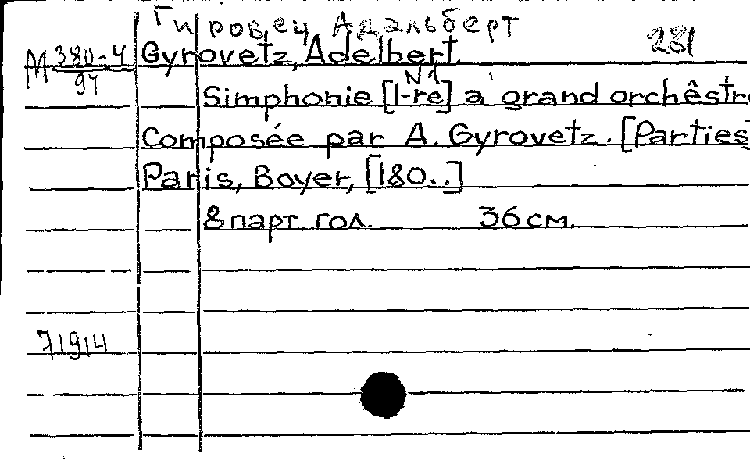 Гировец Адальберт
М 380-4/97 Gyrovetz, Adelbert 281
N1
Simphonie [1-re] a grand orchêstre
Composée par A. Gyrovetz. [Parties]
Paris, Boyer, [180..]
8 парт. гол. 36 см.
71914